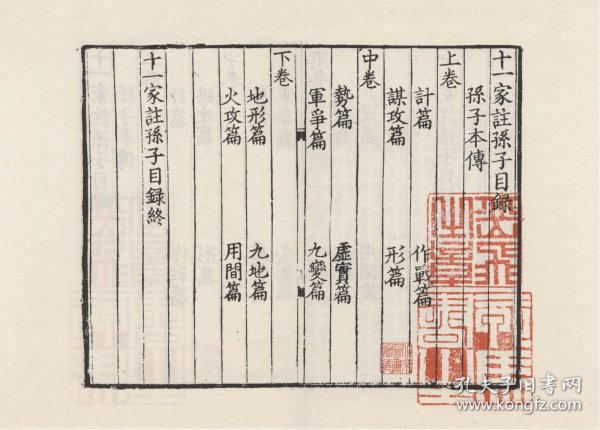 十一家註孫子目録
孫子本傳
上卷
計篇 作戰篇
謀攻篇 形篇
中卷
勢篇 虛實篇
軍爭篇 九變篇
下卷
地形篇 九地篇
火攻篇 用間篇
十一家註孫子目録終
孔夫子旧书网
www.kongfz.com